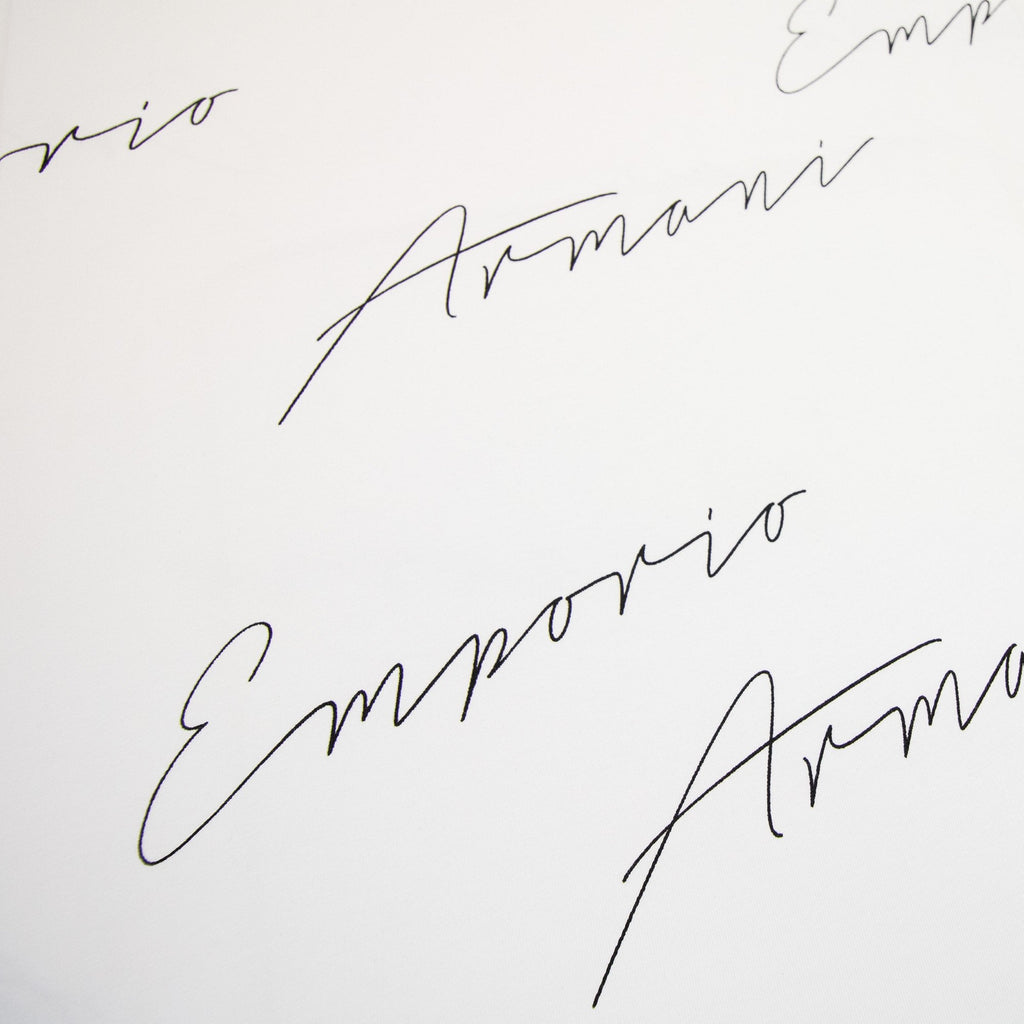 Emp
rio
Armani
Emporio
Arma